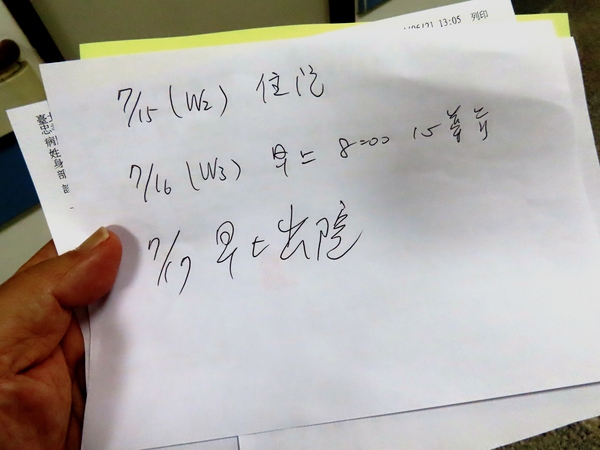 06/21 13:05 列印
7/15 (W2) 住院
7/16 (W3) 早上 8:00
7/17 早上出院
臺
忠
病
姓
身
部